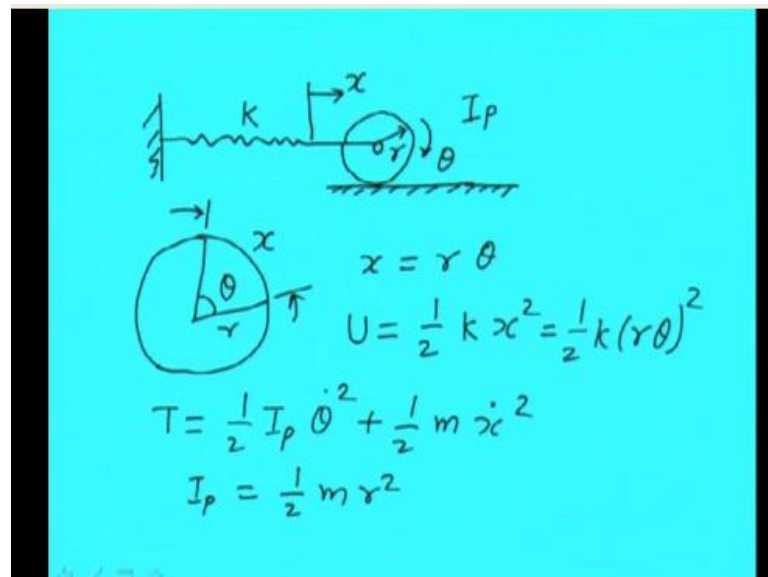 k x r I_p θ
x θ r
x = r θ
U = 1/2 k x² = 1/2 k (rθ)²
T = 1/2 I_p θ̇² + 1/2 m ẋ²
I_p = 1/2 m r²